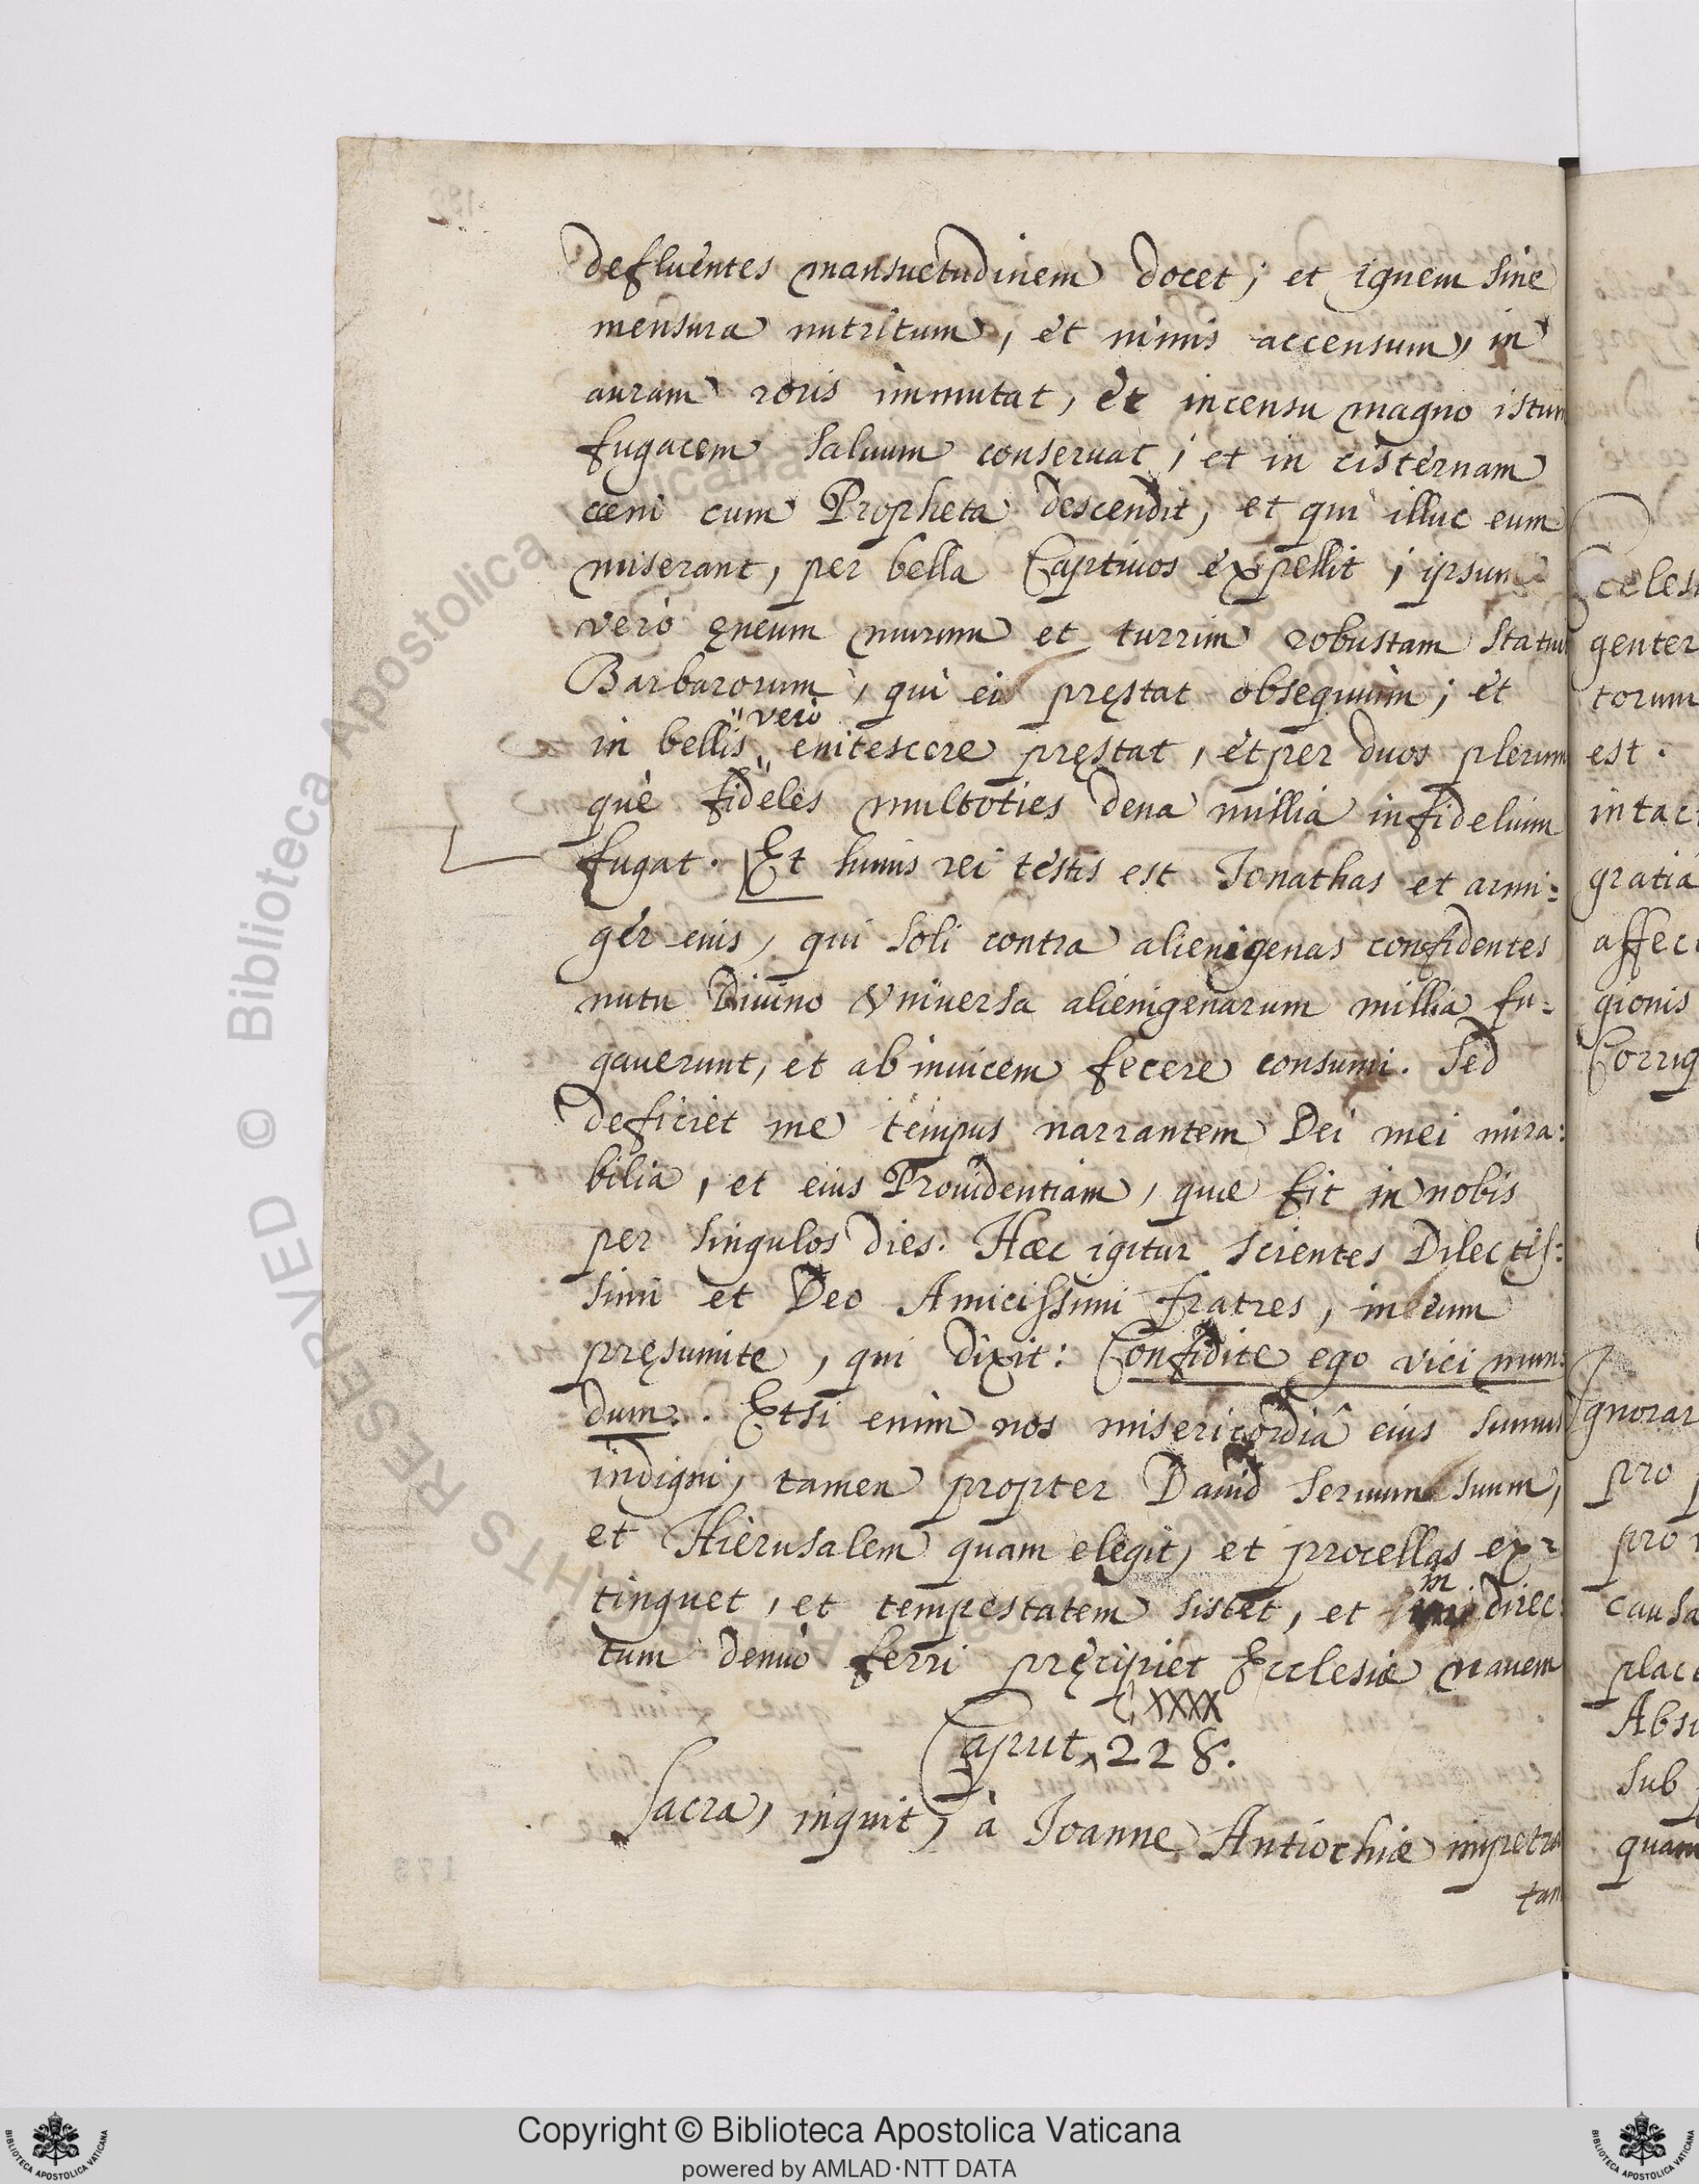 defluentes mansuetudinem docet; et ignem sine
mensura nutritum, et nimis accensum, in
auram roris immutat, et incensu magno istum
fugacem saluum conseruat; et in cisternam
cœni cum Propheta descendit, et qui illuc eum
miserant, per bella Captiuos expellit; ipsum
verò ęneum murum et turrim robustam statui
Barbarorum, qui ei pręstat obsequium; et
in bellis verò enitescere pręstat, et per duos plerum
què fideles multoties dena millia infidelium
fugat. Et huius rei testis est Jonathas et armi:
ger eius, qui soli contra alienigenas confidentes
nutu Diuino Vniuersa alienigenarum millia fu-
gauerunt, et ab inuicem fecere consumi. Sed
deficiet me tempus narrantem Dei mei mira:
bilia, et eius Prouidentiam, quæ fit in nobis
per singulos dies. Hæc igitur scientes Dilectis:
simi et Deo Amicissimi fratres, in eum
pręsumite, qui dixit: Confidite ego vici mun:
dum. Etsi enim nos misericordiâ eius sumus
indigni, tamen propter Dauid seruum suum,
et Hierusalem quam elegit, et procellas ex-
tinguet, et tempestatem sistet, et in direc:
tum denuò ferri pręcipiet Ecclesiæ nauem
CXXXX
Caput 228.
Sacra, inquit, à Joanne Antiochiæ impetra
tam
celest
genter
torum
est.
intact
gratia
affect
gionis
Corrig
Ignorar
pro
pro
causa
place
Abs
sub
quam
RESERVED © Biblioteca Apostolica Vaticana
Copyright © Biblioteca Apostolica Vaticana
powered by AMLAD·NTT DATA